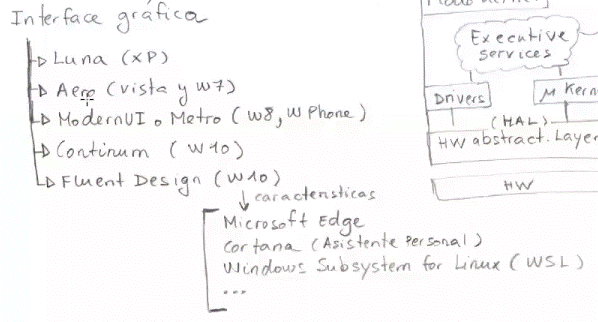 Interface gráfica
Luna (XP)
Aero (Vista y W7)
ModernUI o Metro (W8, W Phone)
Continum (W10)
Fluent Design (W10)
características
Microsoft Edge
Cortana (Asistente Personal)
Windows Subsystem for Linux (WSL)
...
Executive
services
Drivers
M Kern
(HAL)
HW abstract. Layer
HW